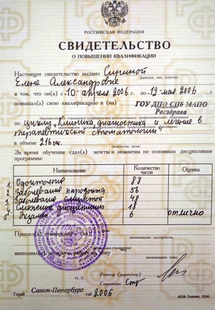 РОССИЙСКАЯ ФЕДЕРАЦИЯ
СВИДЕТЕЛЬСТВО
О ПОВЫШЕНИИ КВАЛИФИКАЦИИ
Настоящее свидетельство выдано
Елене Александровне
в том, что он(а) с „10" апреля 2006 г. по „19" мая 2006 г.
повышал(а) свою квалификацию в ГОУ ДПО СПб МАПО
Росздрава
циклу „Клиника, диагностика и лечение в
терапевтической стоматологии"
в объеме 216 час.
За время обучения сдал(а) зачеты и экзамены по основным дисциплинам
программы:
Наименование Количество часов Оценка
1. Одонтология
2. Заболевания пародонта 56
3. Заболевания слизистой 48
4. Смежные дисциплины
экзамен 6 отлично
Прошел(а) стажировку в
Город Санкт-Петербург год 2006